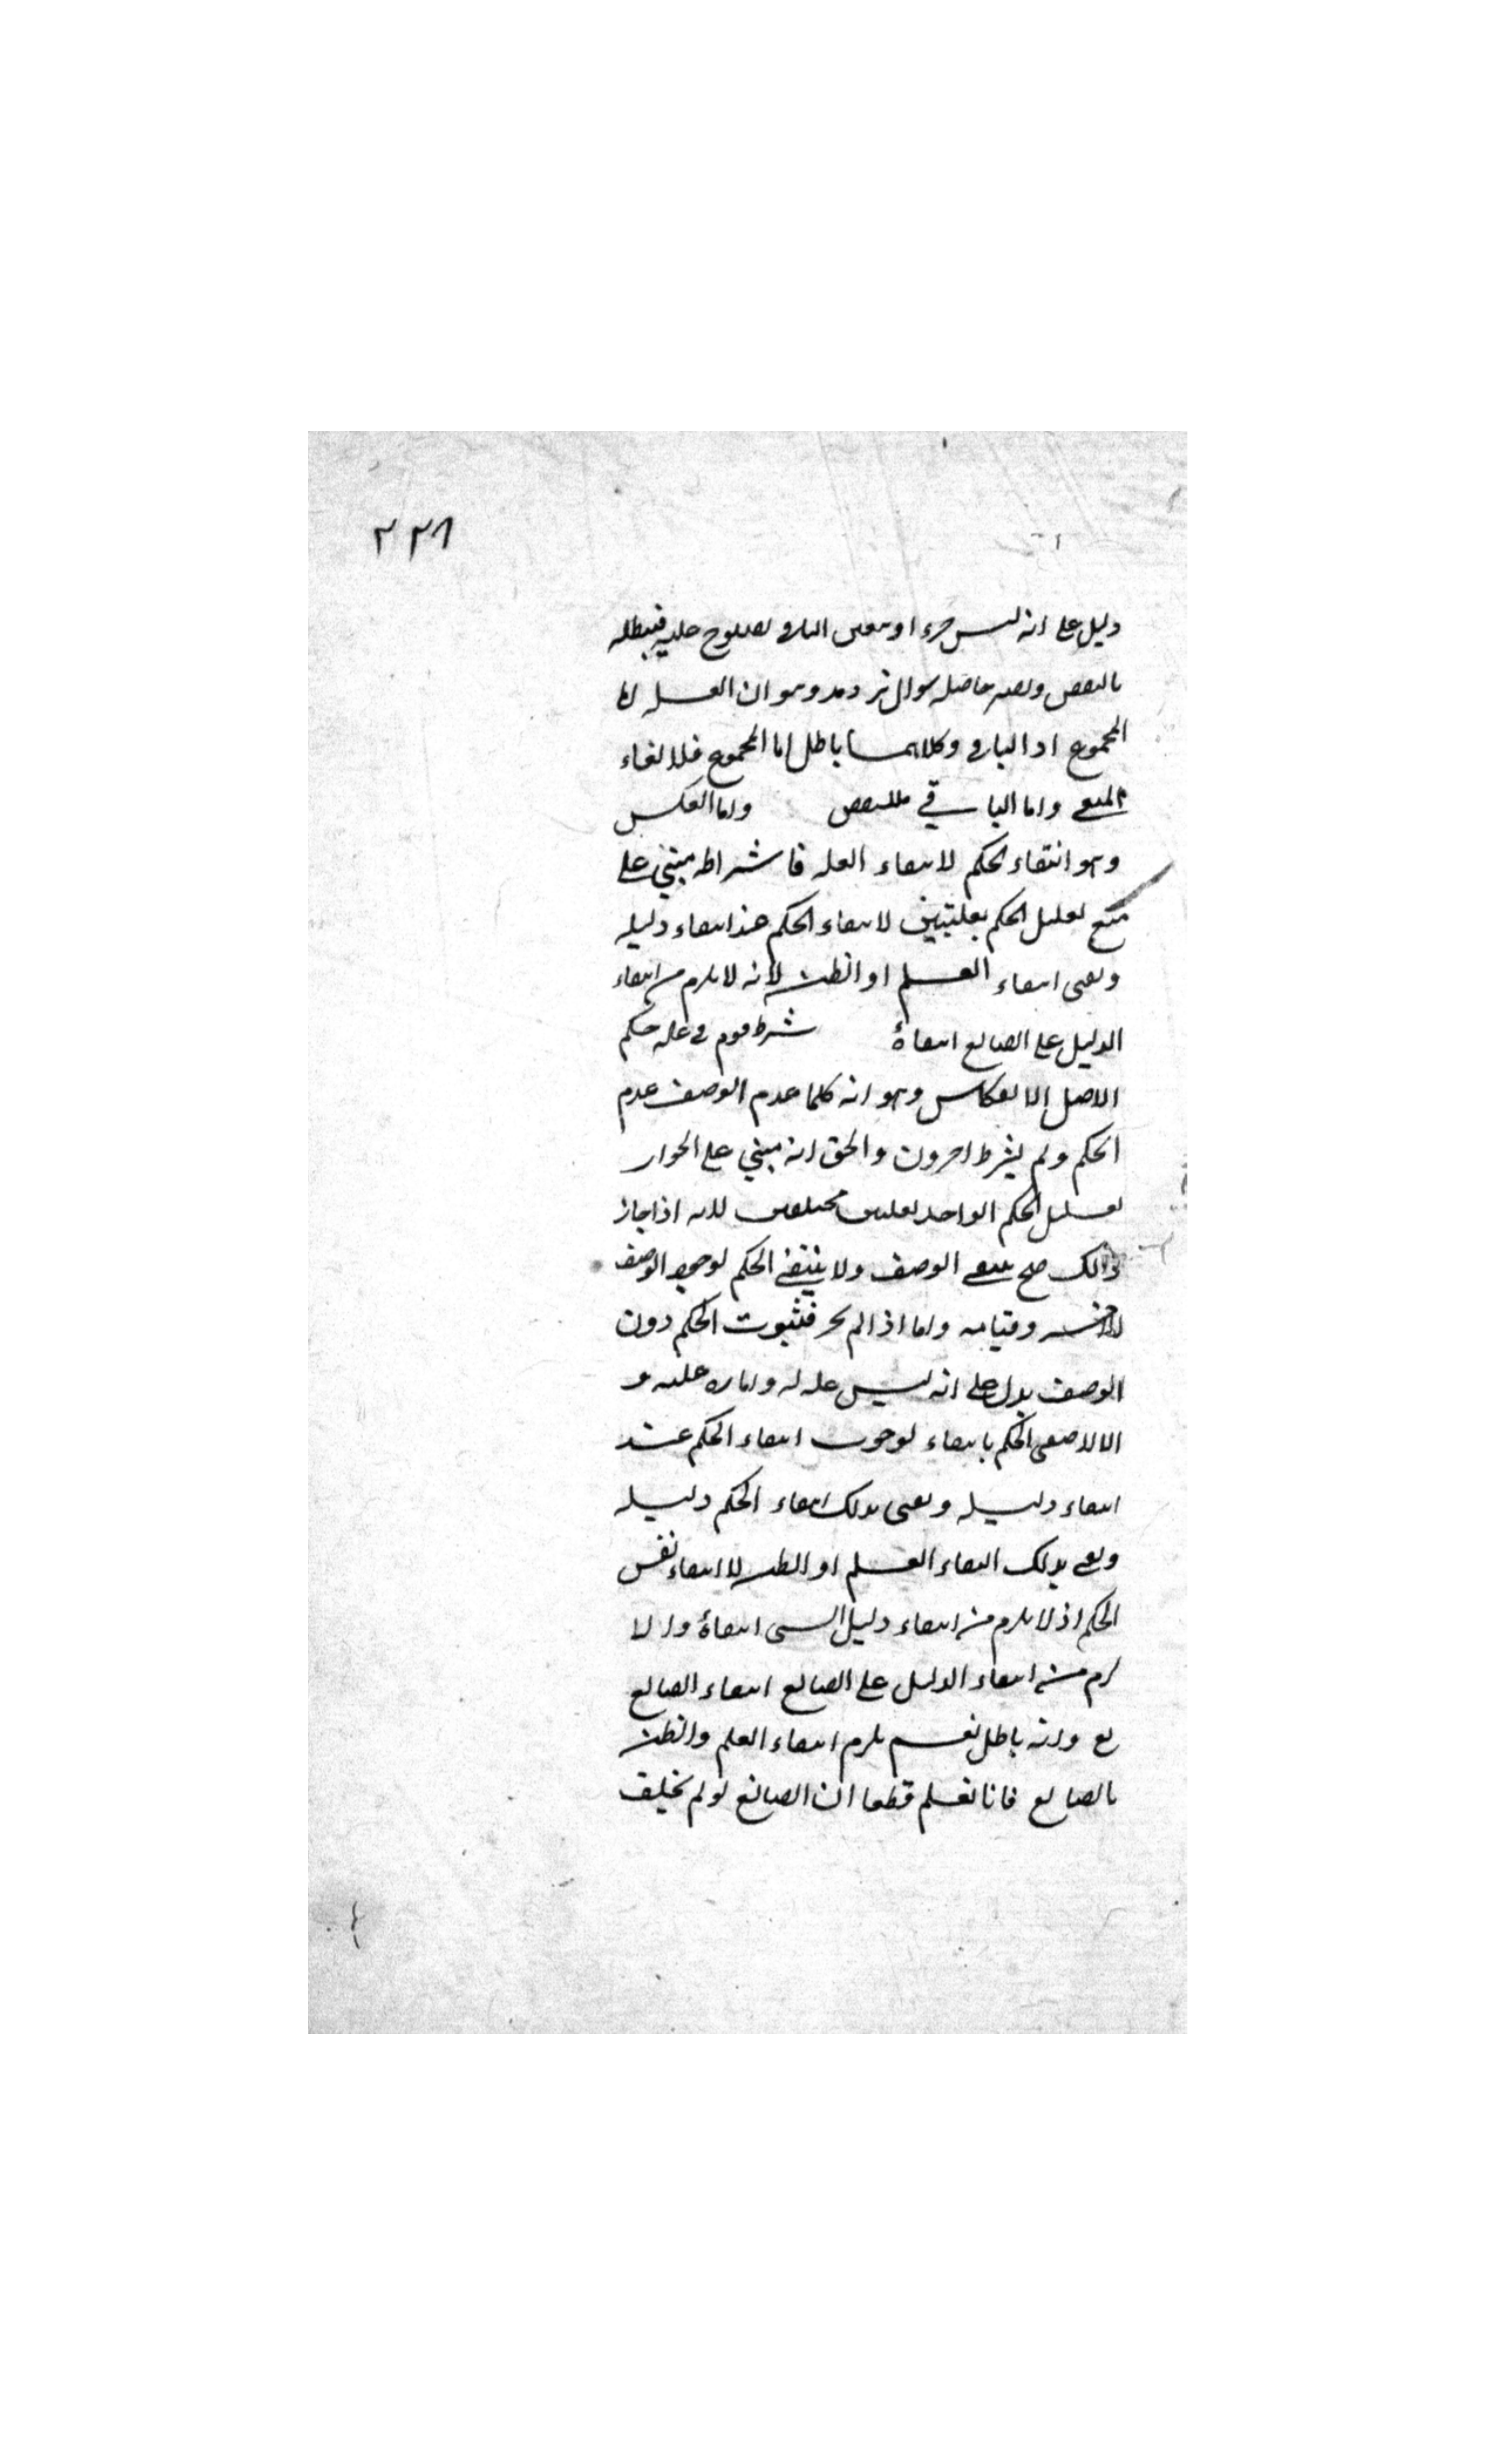 ٢٣٨
دليل على انه ليس جزءا ويتعين الباقي لصلوح عليه فيبطله
بالنقض ونصه حاصله سوال ترديد وهو ان العله اما
المجموع او الباقي وكلاهما باطل اما المجموع فلالغاء
الملغي واما الباقي فللنقض واما العكس
وهو انتفاء الحكم لانتفاء العله فاشتراطه مبتني على
منع تعليل الحكم بعلتين لانتفاء الحكم عند انتفاء دليله
ونعني انتفاء العلم او الظن لانه لا يلزم من انتفاء
الدليل على الصانع انتفاؤه شرط قوم في عله حكم
الاصل الانعكاس وهو انه كلما عدم الوصف عدم
الحكم ولم يشرط اخرون والحق انه مبني على الجواز
تعليل الحكم الواحد بعلتين مختلفتين لانه اذا جاز
ذالك صح ينتفي الوصف ولا ينتفي الحكم لوجود الوصف
الاخر وقيامه واما اذا لم يجز فثبوت الحكم دون
الوصف يدل على انه ليس عله له واماره عليه و
الا لانتفى الحكم بانتفاء لوجوب انتفاء الحكم عند
انتفاء دليله ونعني بذلك انتفاء الحكم دليله
ونعني بذلك انتفاء العلم او الظن لا انتفاء نفس
الحكم اذ لا يلزم من انتفاء دليل الشي انتفاؤه والا
لزم من انتفاء الدليل على الصانع انتفاء الصانع
تع وانه باطل نعم يلزم انتفاء العلم والظن
بالصانع فانا نعلم قطعا ان الصانع لو لم يخلق